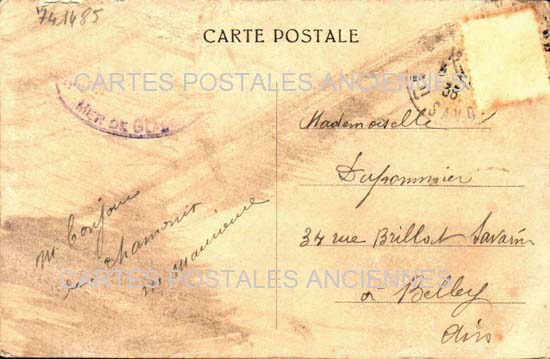 741485
CARTE POSTALE
CARTES POSTALES ANCIENNES
MER DE GLACE
38
SAVO
Mademoiselle
Dupommier
34 rue Brillat Savarin
à Belley
Ain
m. Bonjour
Chamonix
CARTES POSTALES ANCIENNES